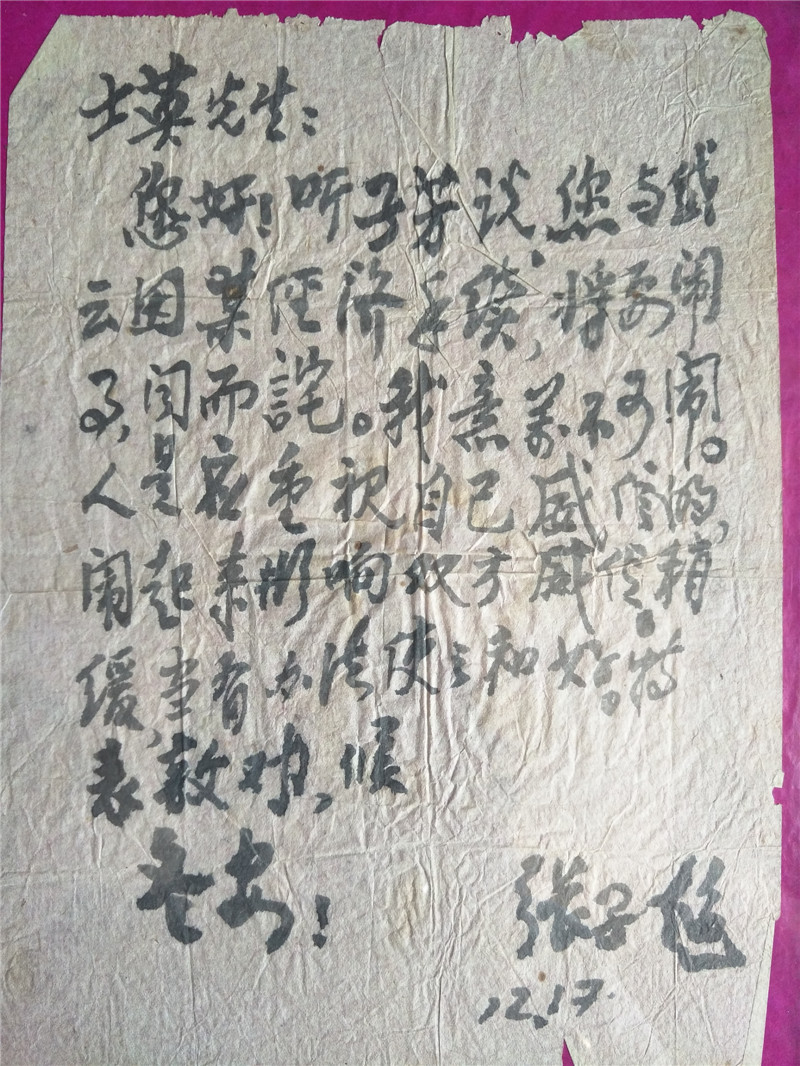 士英先生:
您好!听子芳说,您与戚
云因某经济手续,将要闹
事,闻而诧。我意万不可闹。
人是应重视自己威信的,
闹起来影响双方威信。稍
缓,当有办法使之和好。特
表敬劝,候
冬安!
张子
12.17.